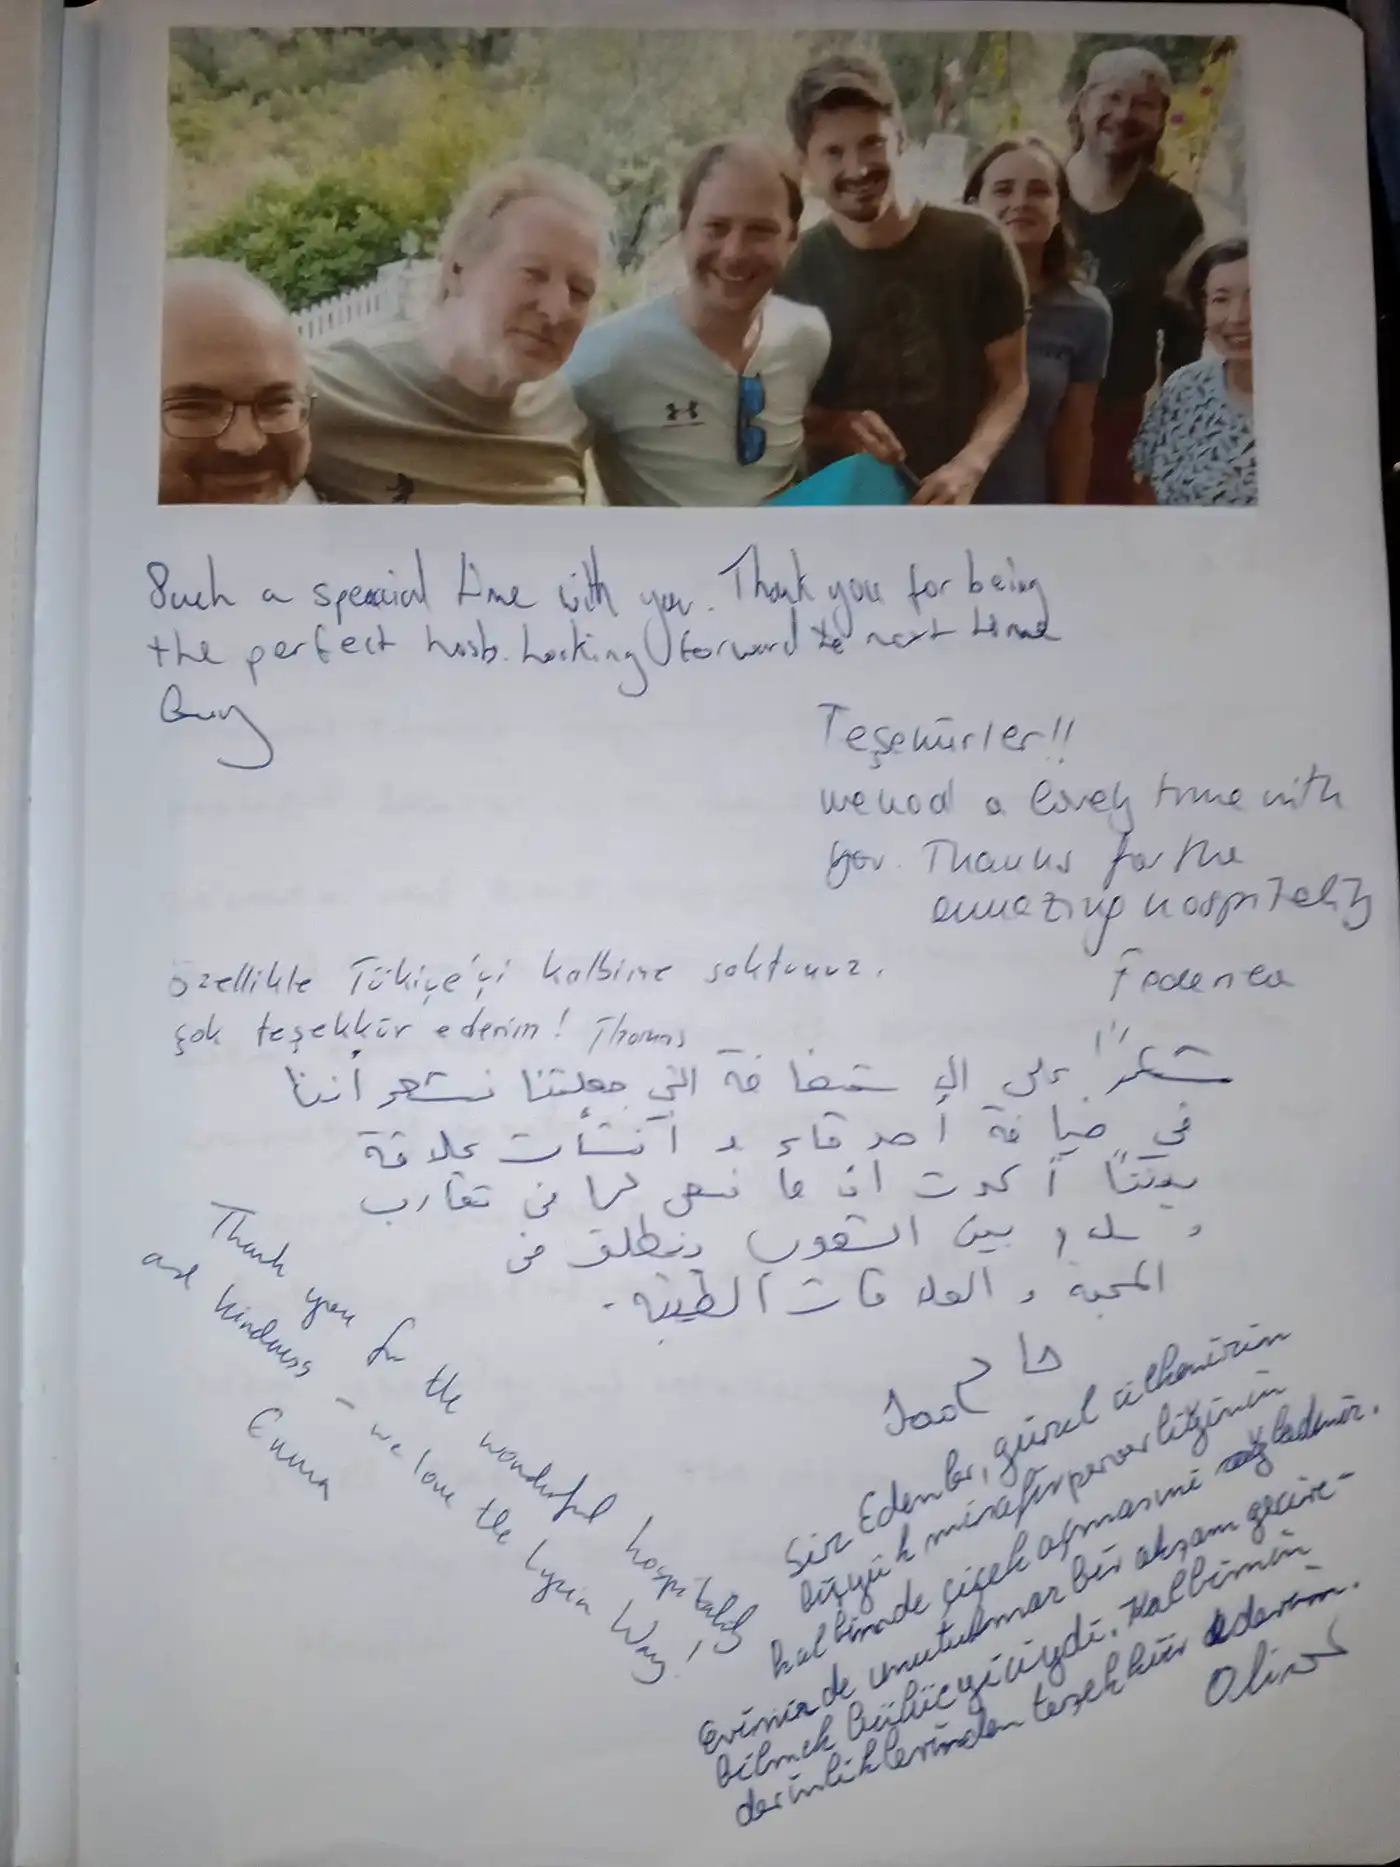 Such a special time with you. Thank you for being
the perfect host. Looking forward to next time
Guy
Teşekürler!!
we had a lovely time with
you. Thanks for the
amazing hospitality
Federica
özellikle Tükiçe'yi kalbime soktunuz.
çok teşekkür ederim! Thomas
شكراً على الاستضافة التي جعلتنا نشعر أننا
في ضيافة أصدقاء و أنشأت علاقة
بيننا أكدت ان ما نسعى له في تقارب
و بين الشعوب ينطلق من
المحبة و العلاقات الطيبة.
Jad
Thank you for the wonderful hospitality
and kindness - we love the Lycian Way!
Emma
Siz Edenler, güzel ülkenizin
büyük misafirperverliğinin
kalbimde çiçek açmasını sağladınız.
Evinizde unutulmaz bir akşam geçire-
bilmek büyüleyiciydi. Kalbimin
derinliklerinden teşekkür ederim.
Oliver